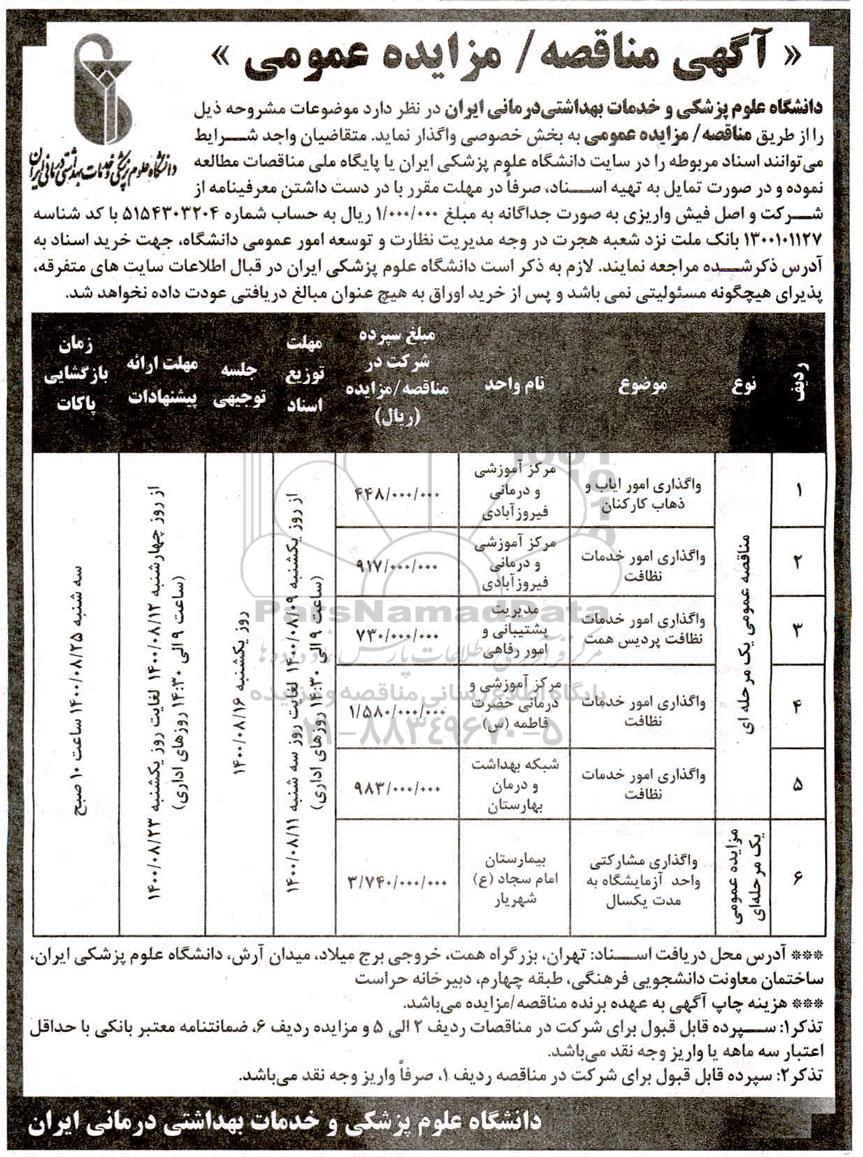 « آگهی مناقصه / مزایده عمومی »
دانشگاه علوم پزشکی و خدمات بهداشتی درمانی ایران
دانشگاه علوم پزشکی و خدمات بهداشتی درمانی ایران در نظر دارد موضوعات مشروحه ذیل
را از طریق مناقصه/ مزایده عمومی به بخش خصوصی واگذار نماید. متقاضیان واجد شرایط
می‌توانند اسناد مربوطه را در سایت دانشگاه علوم پزشکی ایران یا پایگاه ملی مناقصات مطالعه
نموده و در صورت تمایل به تهیه اسناد، صرفاً در مهلت مقرر با در دست داشتن معرفینامه از
شرکت و اصل فیش واریزی به صورت جداگانه به مبلغ ۱/۰۰۰/۰۰۰ ریال به حساب شماره ۵۱۵۴۳۰۳۲۰۴ با کد شناسه
۱۳۰۰۱۰۱۱۲۷ بانک ملت نزد شعبه هجرت در وجه مدیریت نظارت و توسعه امور عمومی دانشگاه، جهت خرید اسناد به
آدرس ذکرشده مراجعه نمایند. لازم به ذکر است دانشگاه علوم پزشکی ایران در قبال اطلاعات سایت های متفرقه،
پذیرای هیچگونه مسئولیتی نمی باشد و پس از خرید اوراق به هیچ عنوان مبالغ دریافتی عودت داده نخواهد شد.
ردیف
نوع
موضوع
نام واحد
مبلغ سپرده
شرکت در
مناقصه/مزایده
(ریال)
مهلت
توزیع
اسناد
جلسه
توجیهی
مهلت ارائه
پیشنهادات
زمان
بازگشایی
پاکات
۱
مناقصه عمومی یک مرحله ای
واگذاری امور ایاب و
ذهاب کارکنان
مرکز آموزشی
و درمانی
فیروزآبادی
۴۴۸/۰۰۰/۰۰۰
از روز یکشنبه ۱۴۰۰/۰۸/۰۹ لغایت روز سه شنبه ۱۴۰۰/۰۸/۱۱
(ساعت ۹ الی ۱۴:۳۰ روزهای اداری)
روز یکشنبه ۱۴۰۰/۰۸/۱۶
از روز چهارشنبه ۱۴۰۰/۰۸/۱۲ لغایت روز یکشنبه ۱۴۰۰/۰۸/۲۳
(ساعت ۹ الی ۱۴:۳۰ روزهای اداری)
سه شنبه ۱۴۰۰/۰۸/۲۵ ساعت ۱۰ صبح
۲
واگذاری امور خدمات
نظافت
مرکز آموزشی
و درمانی
فیروزآبادی
۹۱۷/۰۰۰/۰۰۰
۳
واگذاری امور خدمات
نظافت پردیس همت
مدیریت
پشتیبانی و
امور رفاهی
۷۳۰/۰۰۰/۰۰۰
۴
واگذاری امور خدمات
نظافت
مرکز آموزشی و
درمانی حضرت
فاطمه (س)
۱/۵۸۰/۰۰۰/۰۰۰
۵
واگذاری امور خدمات
نظافت
شبکه بهداشت
و درمان
بهارستان
۹۸۳/۰۰۰/۰۰۰
۶
مزایده عمومی
یک مرحله‌ای
واگذاری مشارکتی
واحد آزمایشگاه به
مدت یکسال
بیمارستان
امام سجاد (ع)
شهریار
۳/۷۴۰/۰۰۰/۰۰۰
ParsNamadData
پایگاه اطلاع رسانی مناقصه و مزایده
۰۲۱-۸۸۳۴۹۶۷۰-۵
*** آدرس محل دریافت اسناد: تهران، بزرگراه همت، خروجی برج میلاد، میدان آرش، دانشگاه علوم پزشکی ایران،
ساختمان معاونت دانشجویی فرهنگی، طبقه چهارم، دبیرخانه حراست
*** هزینه چاپ آگهی به عهده برنده مناقصه/مزایده می‌باشد.
تذکر۱: سپرده قابل قبول برای شرکت در مناقصات ردیف ۲ الی ۵ و مزایده ردیف ۶، ضمانتنامه معتبر بانکی با حداقل
اعتبار سه ماهه یا واریز وجه نقد می‌باشد.
تذکر۲: سپرده قابل قبول برای شرکت در مناقصه ردیف ۱، صرفاً واریز وجه نقد می‌باشد.
دانشگاه علوم پزشکی و خدمات بهداشتی درمانی ایران